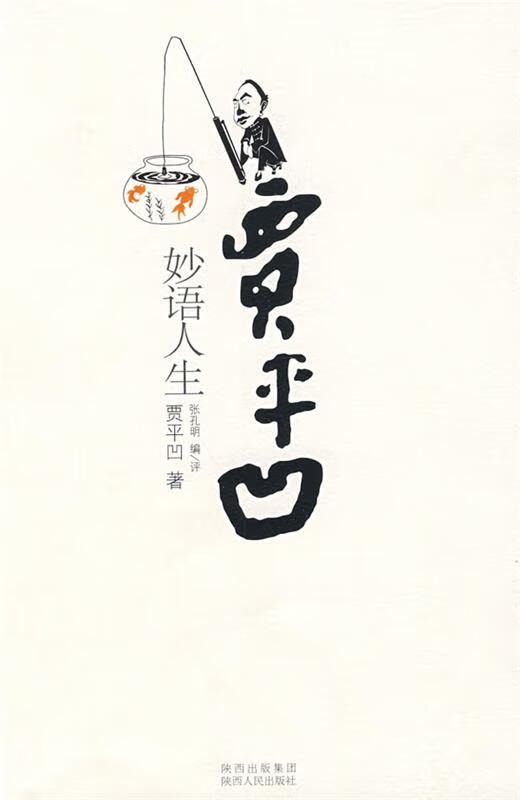 贾平凹
妙语人生
张孔明 编/评
贾平凹 著
陕西出版集团
陕西人民出版社